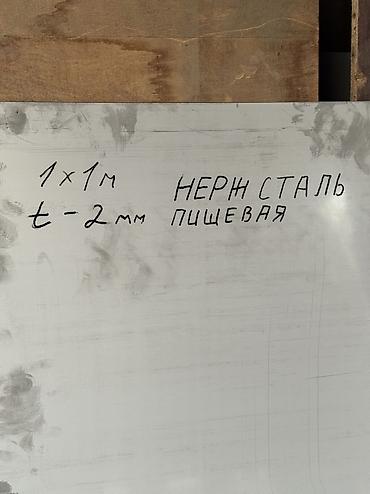 1x1м НЕРЖ СТАЛЬ
t-2мм ПИЩЕВАЯ